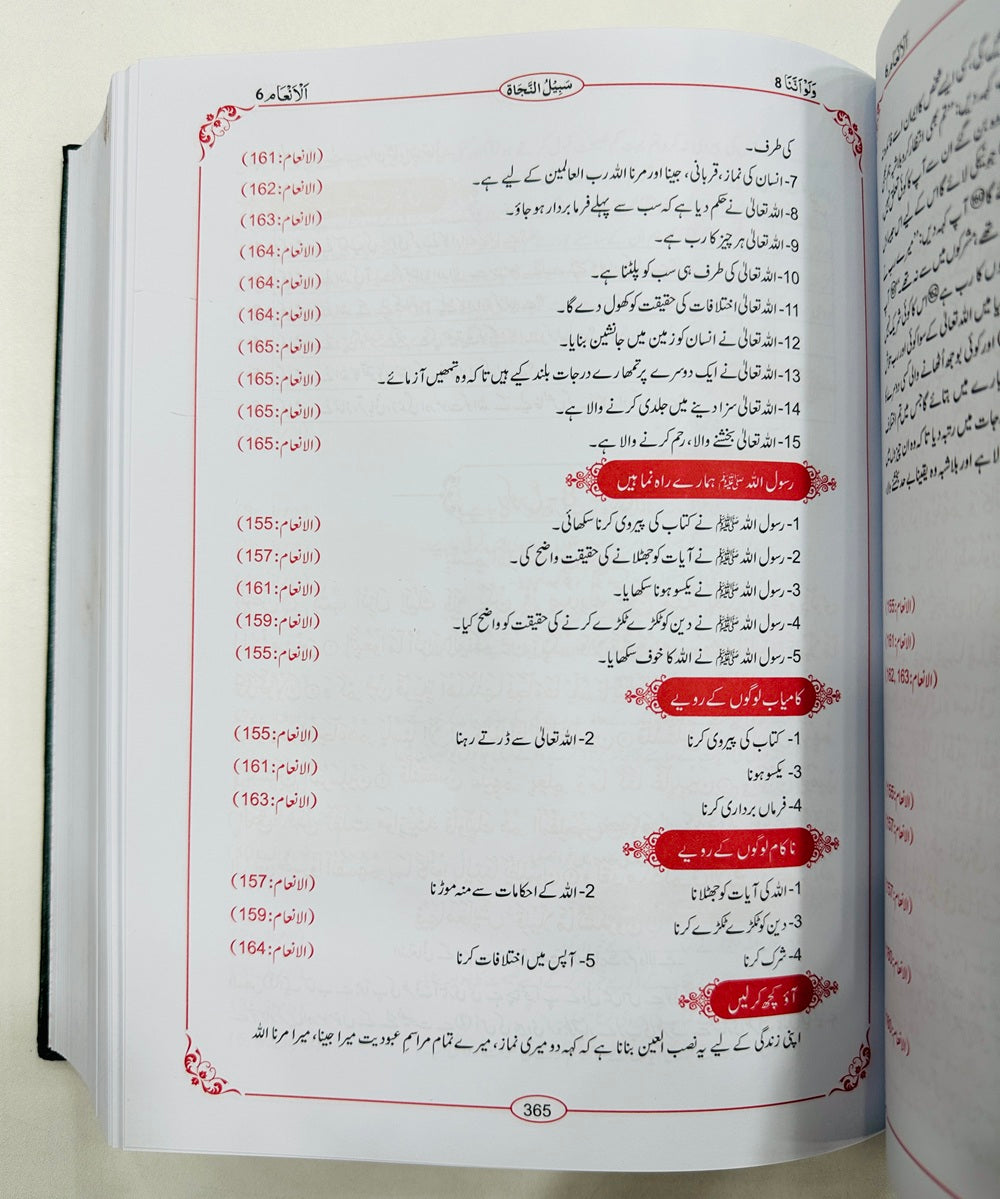 وَلَوْ اَنَّنَا 8
سَبِيْلُ النَّجَاة
اَلْاَنْعَام 6
کی طرف۔ (الانعام:161)
7- انسان کی نماز، قربانی، جینا اور مرنا اللہ رب العالمین کے لیے ہے۔ (الانعام:162)
8- اللہ تعالیٰ نے حکم دیا ہے کہ سب سے پہلے فرما بردار ہو جاؤ۔ (الانعام:163)
9- اللہ تعالیٰ ہر چیز کا رب ہے۔ (الانعام:164)
10- اللہ تعالیٰ کی طرف ہی سب کو پلٹنا ہے۔ (الانعام:164)
11- اللہ تعالیٰ اختلافات کی حقیقت کو کھول دے گا۔ (الانعام:164)
12- اللہ تعالیٰ نے انسان کو زمین میں جانشین بنایا۔ (الانعام:165)
13- اللہ تعالیٰ نے ایک دوسرے پر تمھارے درجات بلند کیے ہیں تاکہ وہ تمھیں آزمائے۔ (الانعام:165)
14- اللہ تعالیٰ سزا دینے میں جلدی کرنے والا ہے۔ (الانعام:165)
15- اللہ تعالیٰ بخشنے والا، رحم کرنے والا ہے۔ (الانعام:165)
رسول اللہ ﷺ ہمارے راہ نما ہیں
1- رسول اللہ ﷺ نے کتاب کی پیروی کرنا سکھائی۔ (الانعام:155)
2- رسول اللہ ﷺ نے آیات کو جھٹلانے کی حقیقت واضح کی۔ (الانعام:157)
3- رسول اللہ ﷺ نے یکسو ہونا سکھایا۔ (الانعام:161)
4- رسول اللہ ﷺ نے دین کو ٹکڑے ٹکڑے کرنے کی حقیقت کو واضح کیا۔ (الانعام:159)
5- رسول اللہ ﷺ نے اللہ کا خوف سکھایا۔ (الانعام:155)
کامیاب لوگوں کے رویے
1- کتاب کی پیروی کرنا 2- اللہ تعالیٰ سے ڈرتے رہنا (الانعام:155)
3- یکسو ہونا (الانعام:161)
4- فرماں برداری کرنا (الانعام:163)
ناکام لوگوں کے رویے
1- اللہ کی آیات کو جھٹلانا 2- اللہ کے احکامات سے منہ موڑنا (الانعام:157)
3- دین کو ٹکڑے ٹکڑے کرنا (الانعام:159)
4- شرک کرنا 5- آپس میں اختلافات کرنا (الانعام:164)
آؤ کچھ کر لیں
اپنی زندگی کے لیے یہ نصب العین بنانا ہے کہ کہہ دو میری نماز، میرے تمام مراسمِ عبودیت میرا جینا، میرا مرنا اللہ
365